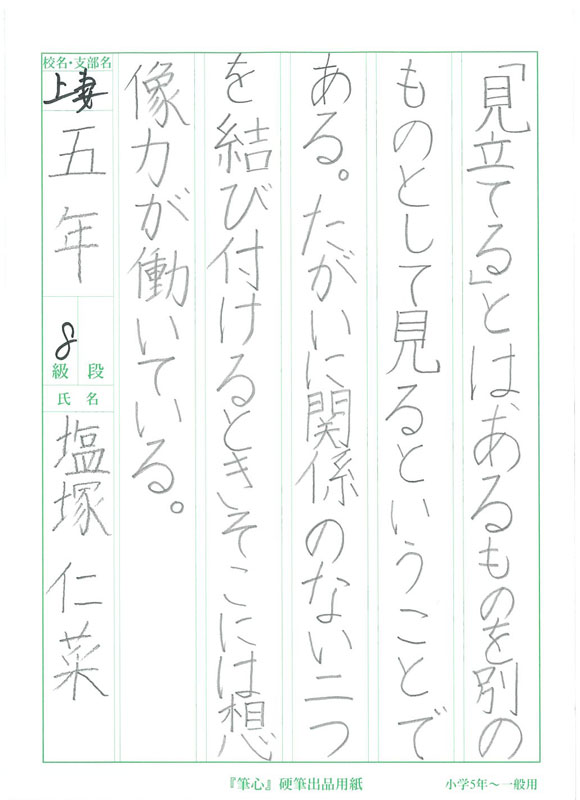 「見立てる」とは、あるものを別の
ものとして見るということで
ある。たがいに関係のない二つ
を結び付けるとき、そこには想
像力が働いている。
校名・支部名
上妻
五年
8
級 段
氏名
塩塚 仁菜
『筆心』硬筆出品用紙
小学5年～一般用